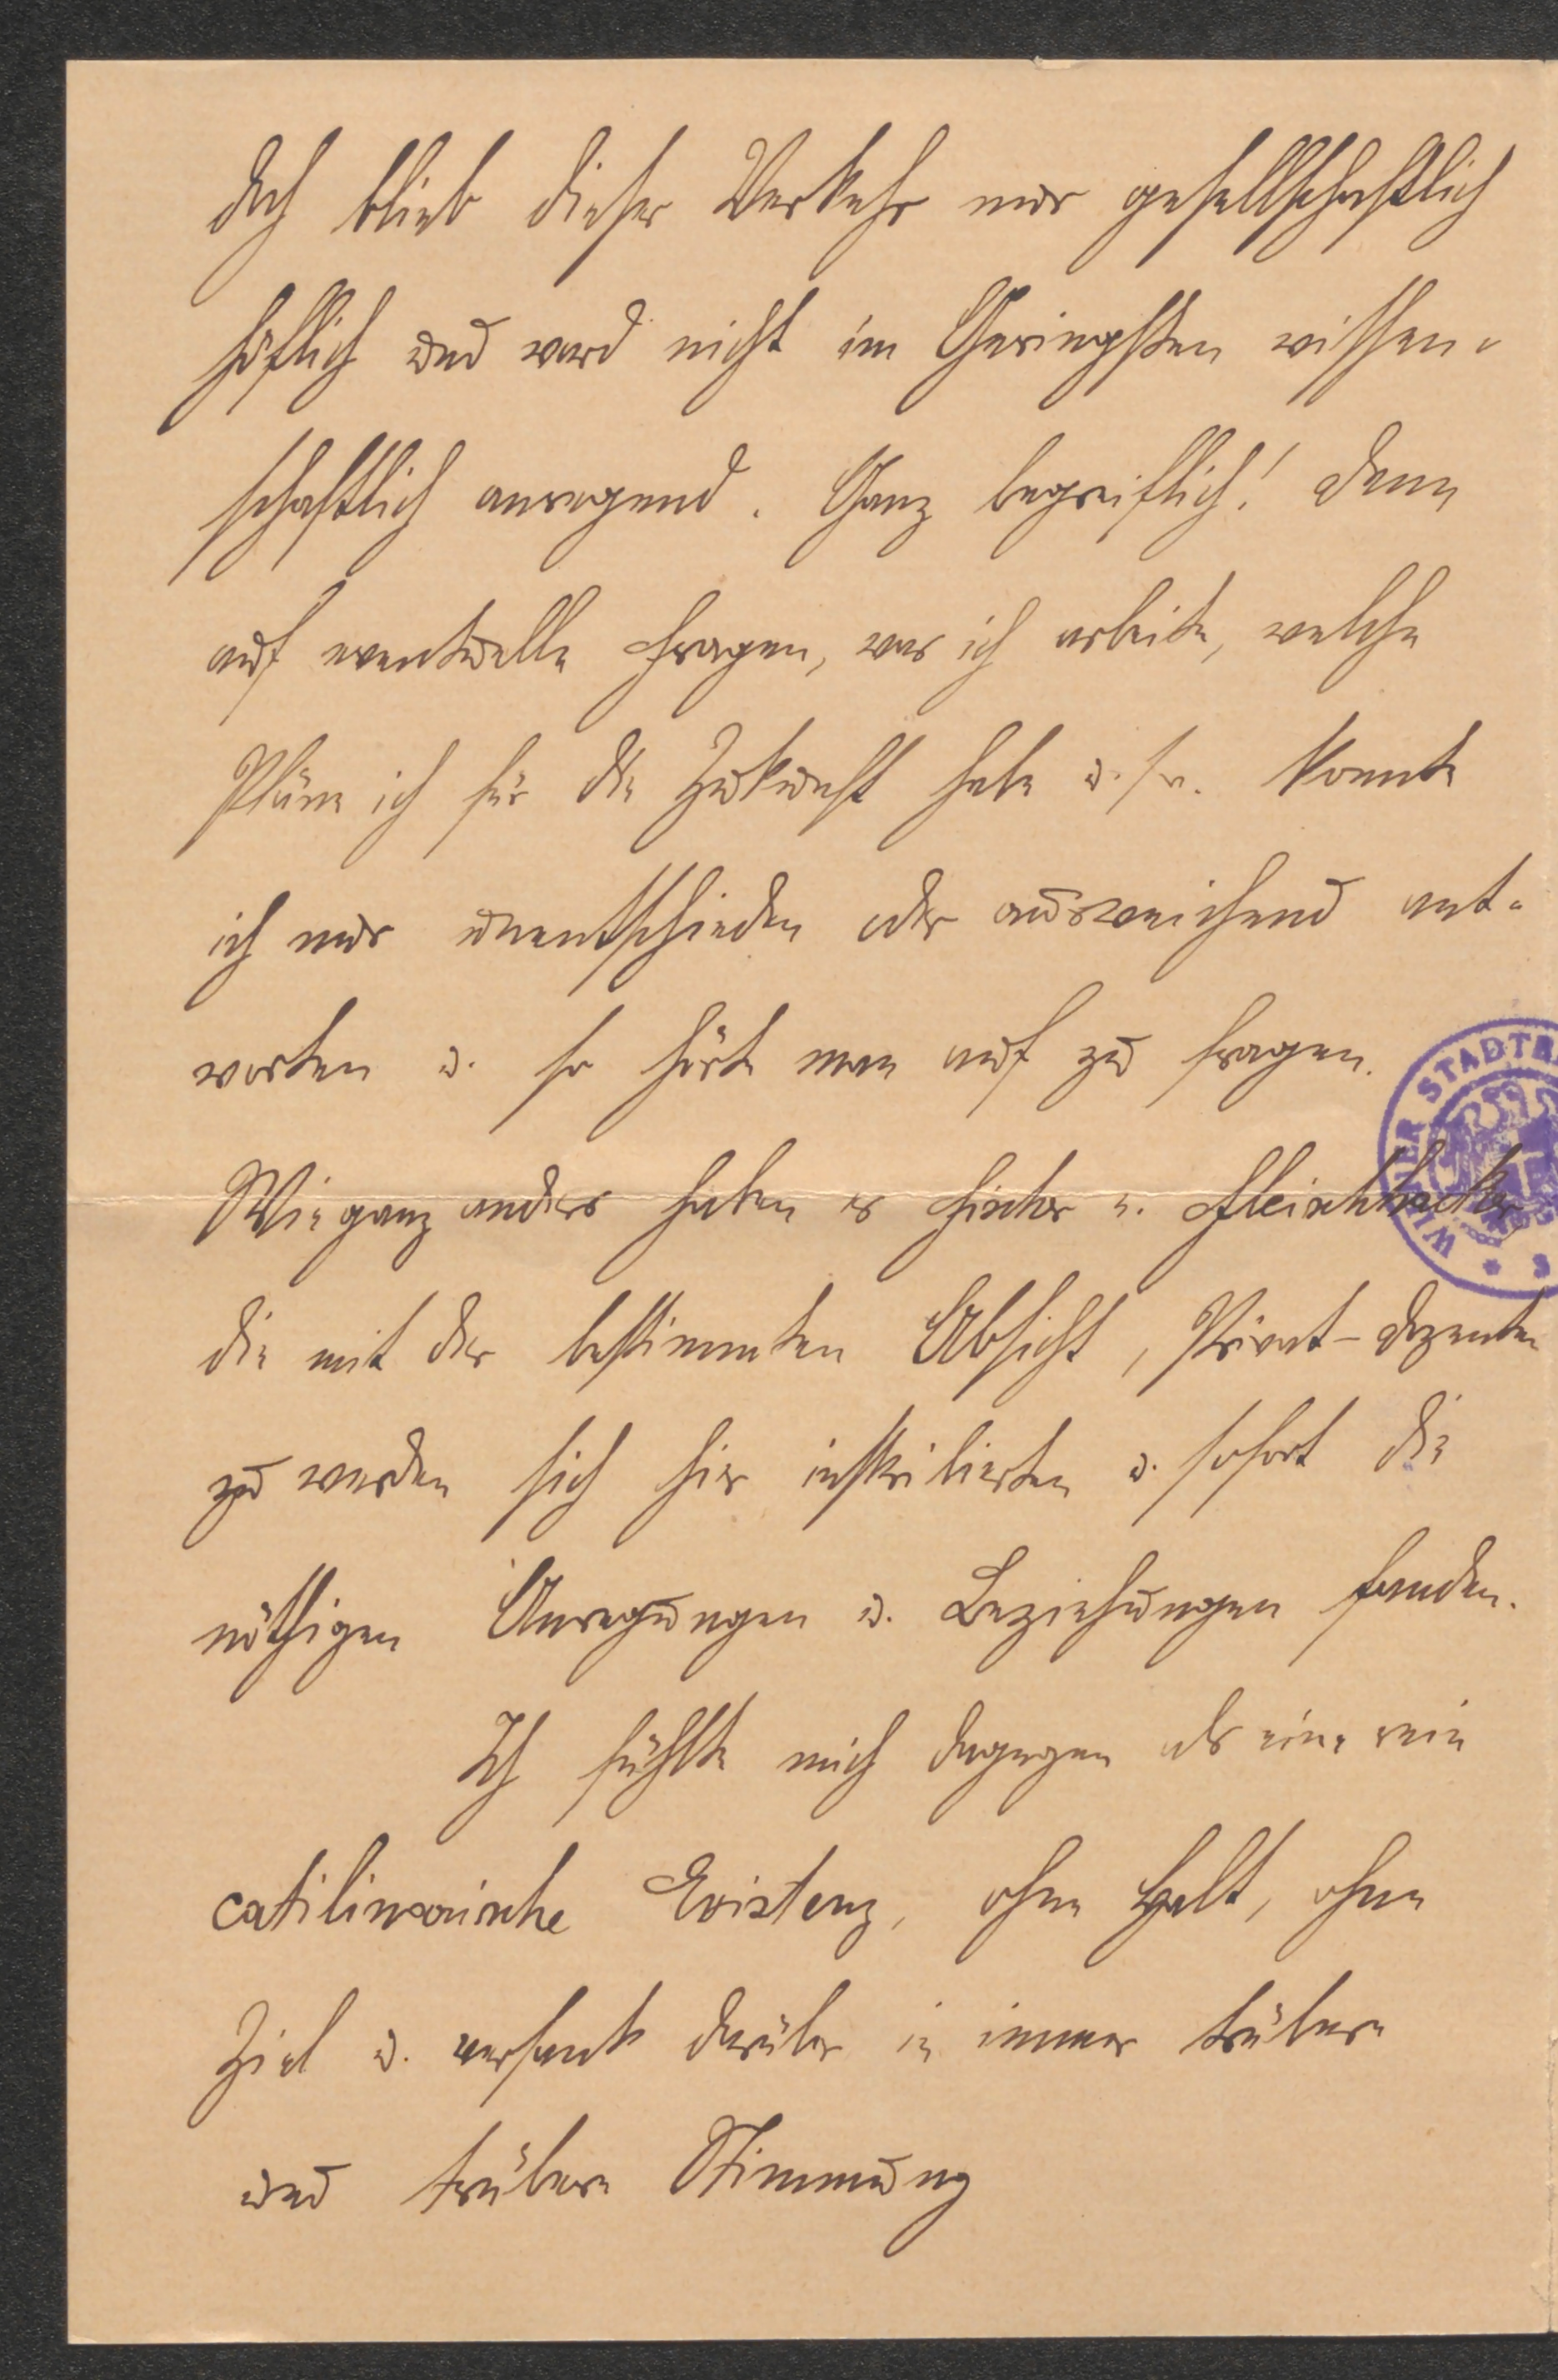 doch blieb dieser Verkehr nur gesellschaftlich
höflich und ward nicht im Geringsten wissen-
schaftlich anregend. Ganz begreiflich! denn
auf eventuelle Fragen, was ich arbeite, welche
Pläne ich für die Zukunft habe u. s. w. konnte
ich nur unentschieden oder ausweichend ant-
worten u. so hörte man auf zu fragen.
Wie ganz anders haben es Fischer u. Fleischhacker
die mit der bestimmten Absicht, Privat-dozenten
zu werden sich hier inskribierten u. sofort die
nöthigen Anregungen u. Beziehungen fanden.
Ich fühlte mich dagegen als eine rein
catilinarische Existenz, ohne Halt, ohne
Ziel u. versank darüber in immer trübere
und trübere Stimmung
WIENER STADTB